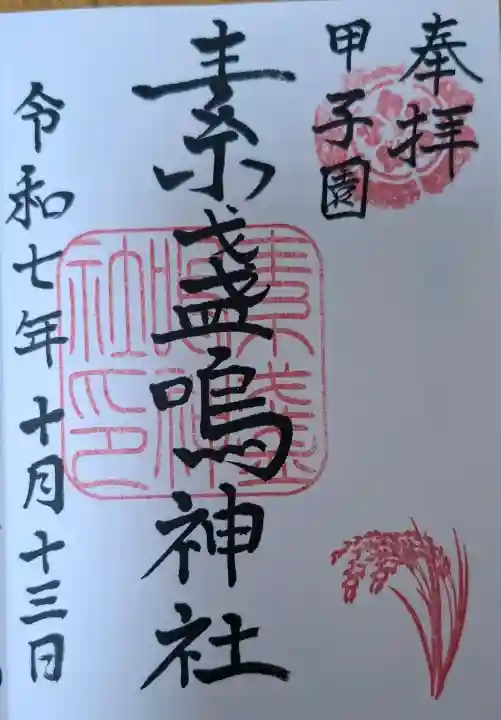 奉拝
甲子園
素盞嗚神社
素盞嗚神社印
令和七年十月十三日